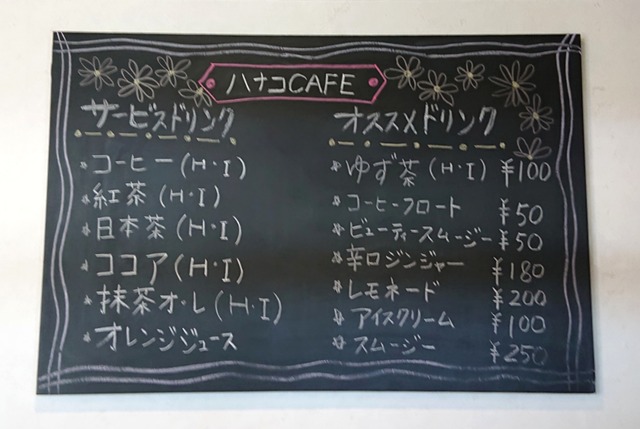 ハナコCAFE
サービスドリンク
*コーヒー(H・I)
*紅茶(H・I)
*日本茶(H・I)
*ココア(H・I)
*抹茶オ・レ(H・I)
*オレンジジュース
オススメドリンク
*ゆず茶(H・I) ¥100
*コーヒーフロート ¥50
*ビューティースムージー ¥50
*辛口ジンジャー ¥180
*レモネード ¥200
*アイスクリーム ¥100
*スムージー ¥250